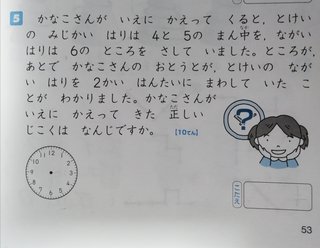 5 かなこさんが いえに かえって くると, とけい
の みじかい はりは 4と 5の まん中を, ながい
はりは 6の ところを さして いました。ところが,
あとで かなこさんの おとうとが, とけいの なが
い はりを 2かい はんたいに まわして いた こ
とが わかりました。かなこさんが
いえに かえって きた 正しい
じこくは なんじですか。 [10てん]
?
12
11 1
10 2
9 3
8 4
7 5
6
こたえ
53